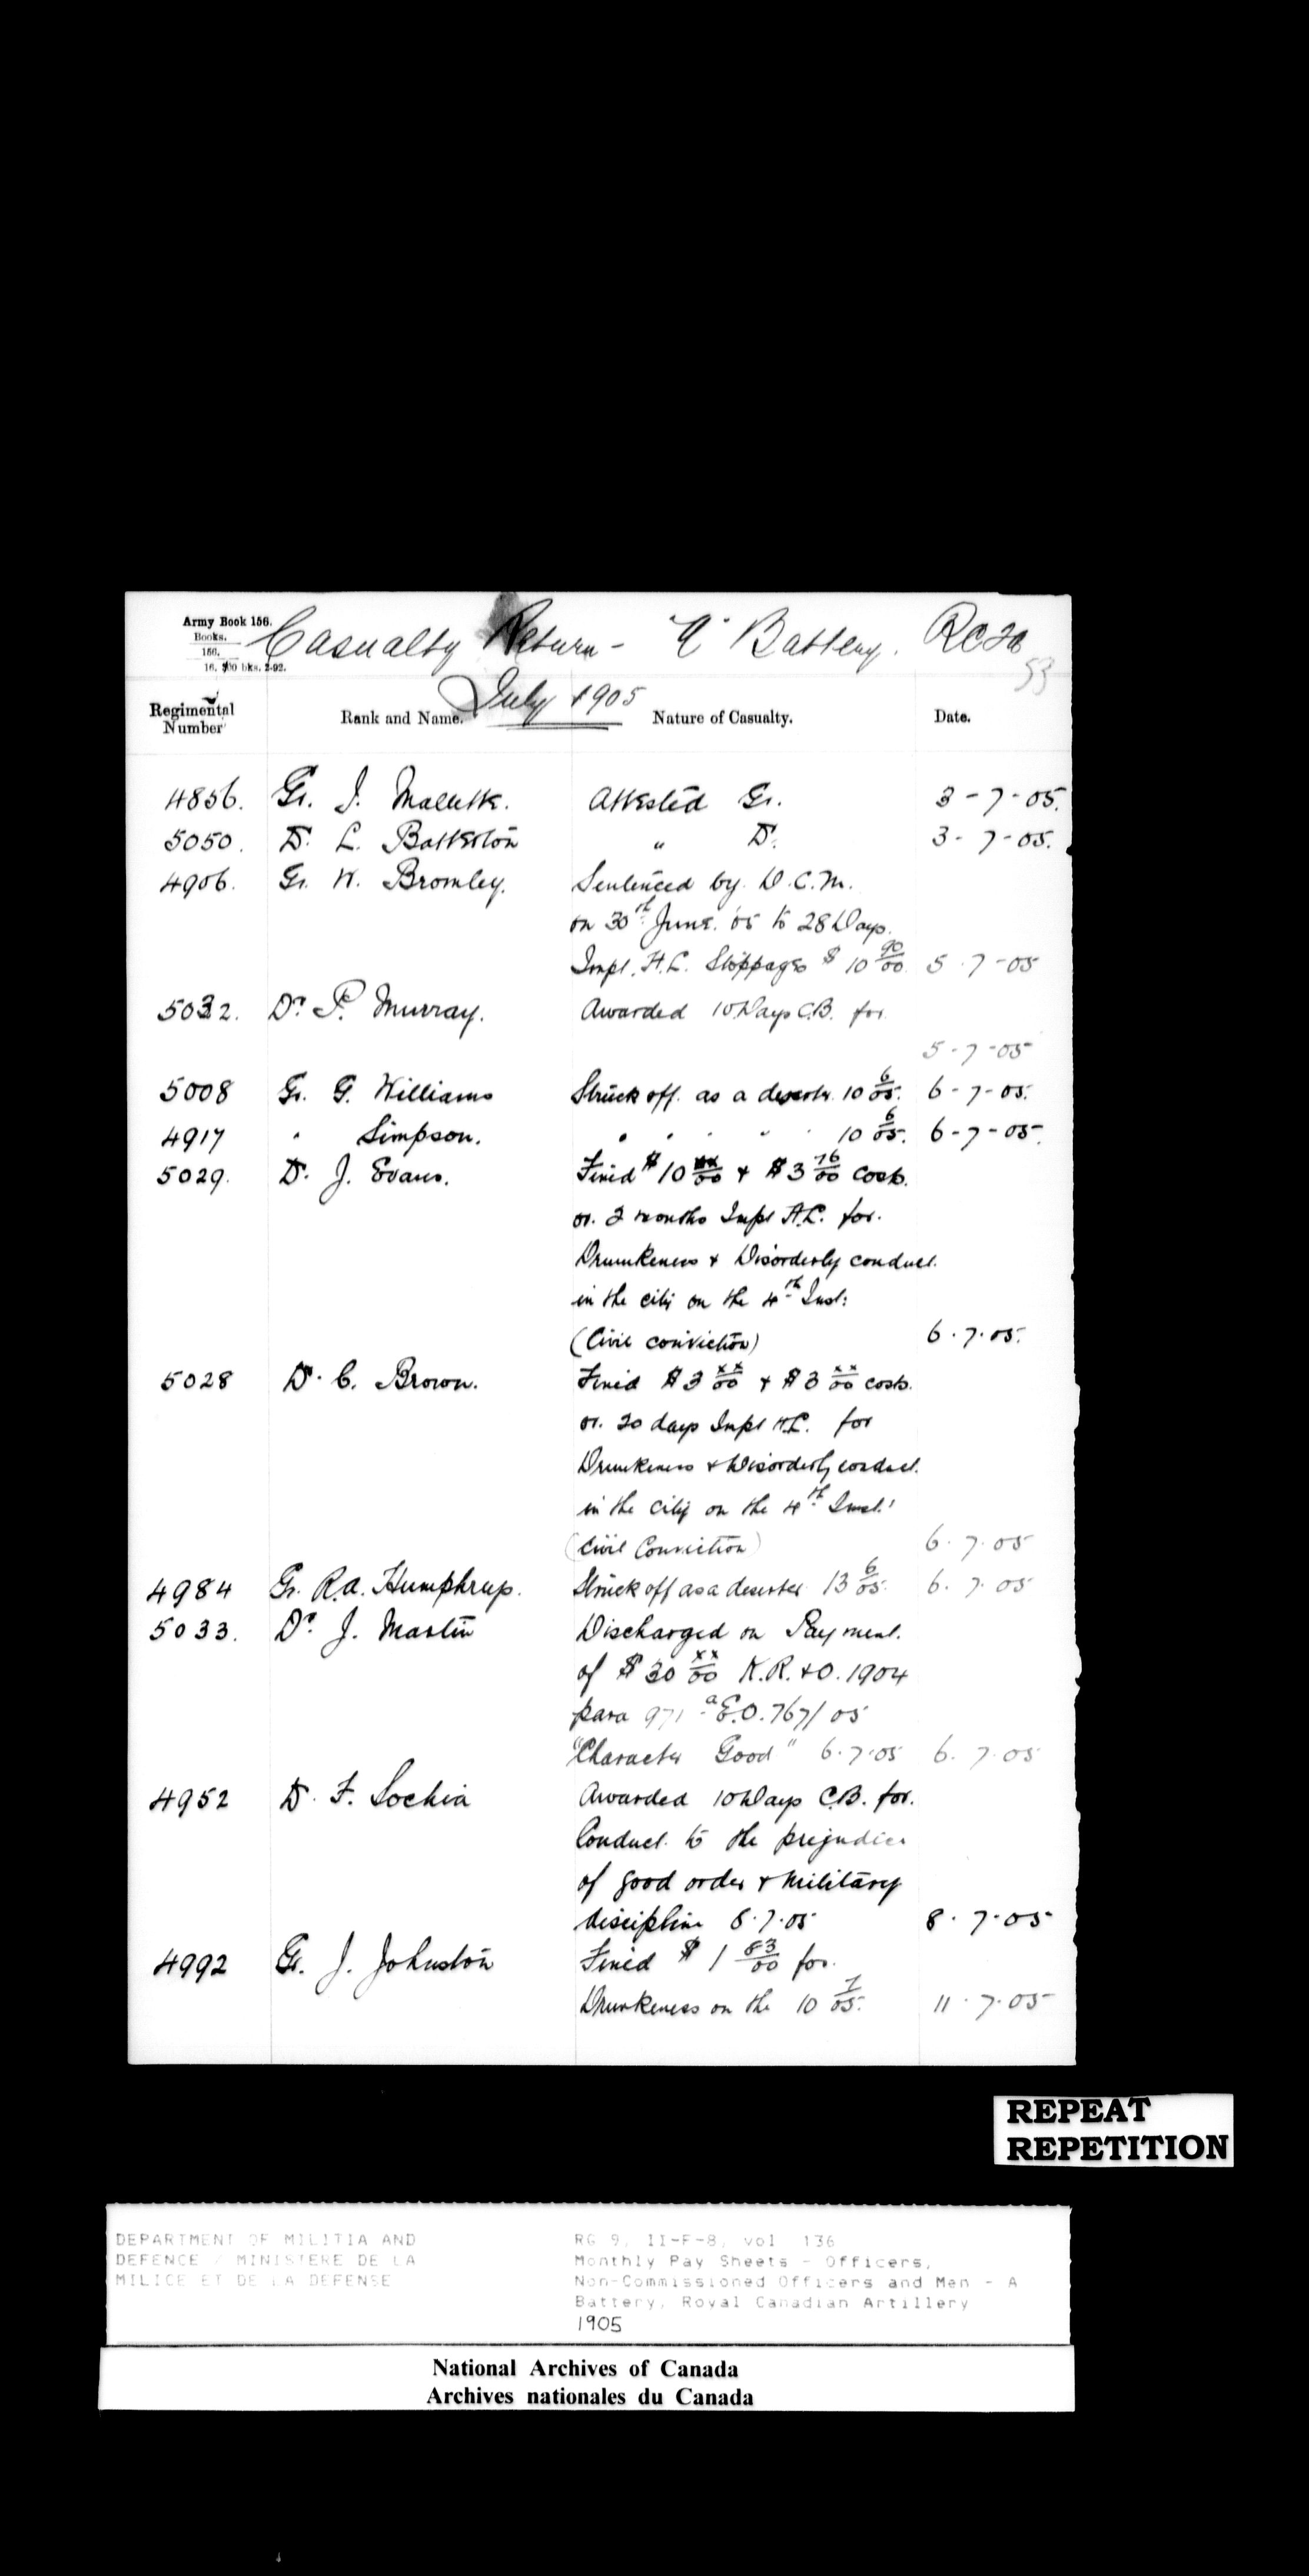 Army Book 156.
Books.
156.
16, 500 bks. 2-92.
Casualty Return - "A" Battery. RCFA
53
July 1905
Regimental Number Rank and Name. Nature of Casualty. Date.
4856. Gr. J. Mallette. Attested Gr. 3-7-05.
5050. Dr. L. Batterton " Dr. 3-7-05.
4906. Gr. W. Bromley. Sentenced by D.C.M.
on 30th June. '05 to 28 Days.
Impt. H.L. Stoppages $10 90/00. 5-7-05
5032. Dr. P. Murray. Awarded 10 Days C.B. for
5-7-05
5008 Gr. G. Williams Struck off. as a deserter 10 6/05. 6-7-05.
4917 " Simpson. " " " " " 10 6/05. 6-7-05.
5029. Dr. J. Evans. Fined $10 xx/00 + $3 76/00 costs.
or. 2 months Impt H.L. for.
Drunkeness + Disorderly conduct.
in the city on the 4th Inst:
(Civil conviction) 6.7.05.
5028 Dr. C. Brown. Fined $3 xx/00 + $3 xx/00 costs.
or. 20 days Impt H.L. for
Drunkeness + Disorderly conduct.
in the city on the 4th Inst:
(Civil Conviction) 6.7.05
4984 Gr. R.A. Humphrup. Struck off as a deserter 13 6/05. 6.7.05
5033. Dr. J. Martin Discharged on Payment.
of $30 xx/00 K.R.+O. 1904
para 971 a E.O. 767/05
"Character Good" 6.7.05 6.7.05
4952 Dr. F. Sochia Awarded 10 Days C.B. for.
Conduct. to the prejudice
of good order + Military
discipline 8.7.05 8.7.05
4992 Gr. J. Johnston Fined $1 83/00 for.
Drunkeness on the 10 7/05. 11.7.05
REPEAT
REPETITION
DEPARTMENT OF MILITIA AND
DEFENCE / MINISTERE DE LA
MILICE ET DE LA DEFENSE
RG 9, II-F-8, vol 136
Monthly Pay Sheets - Officers,
Non-Commissioned Officers and Men - A
Battery, Royal Canadian Artillery
1905
National Archives of Canada
Archives nationales du Canada